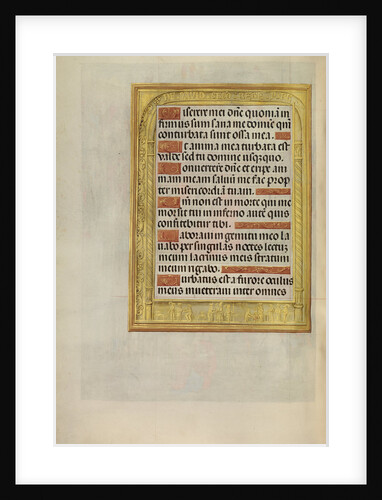 Miserere mei dñe quoniã in
firmus sum sana me domine qm̃
conturbata sunt ossa mea.
Et anima mea turbata est
valde sed tu domine usquequo.
Convertere dñe et eripe ani
mam meam salvũ me fac prop
ter misericordiã tuam.
Qm̃ non est in morte qui me
mor sit tui in inferno autẽ quis
confitebitur tibi.
Laboravi in gemitu meo la
vabo per singulas noctes lectũ
meum lacrimis meis stratum
meum rigabo.
Turbatus est a furore oculus
meus inveteravi inter omnes